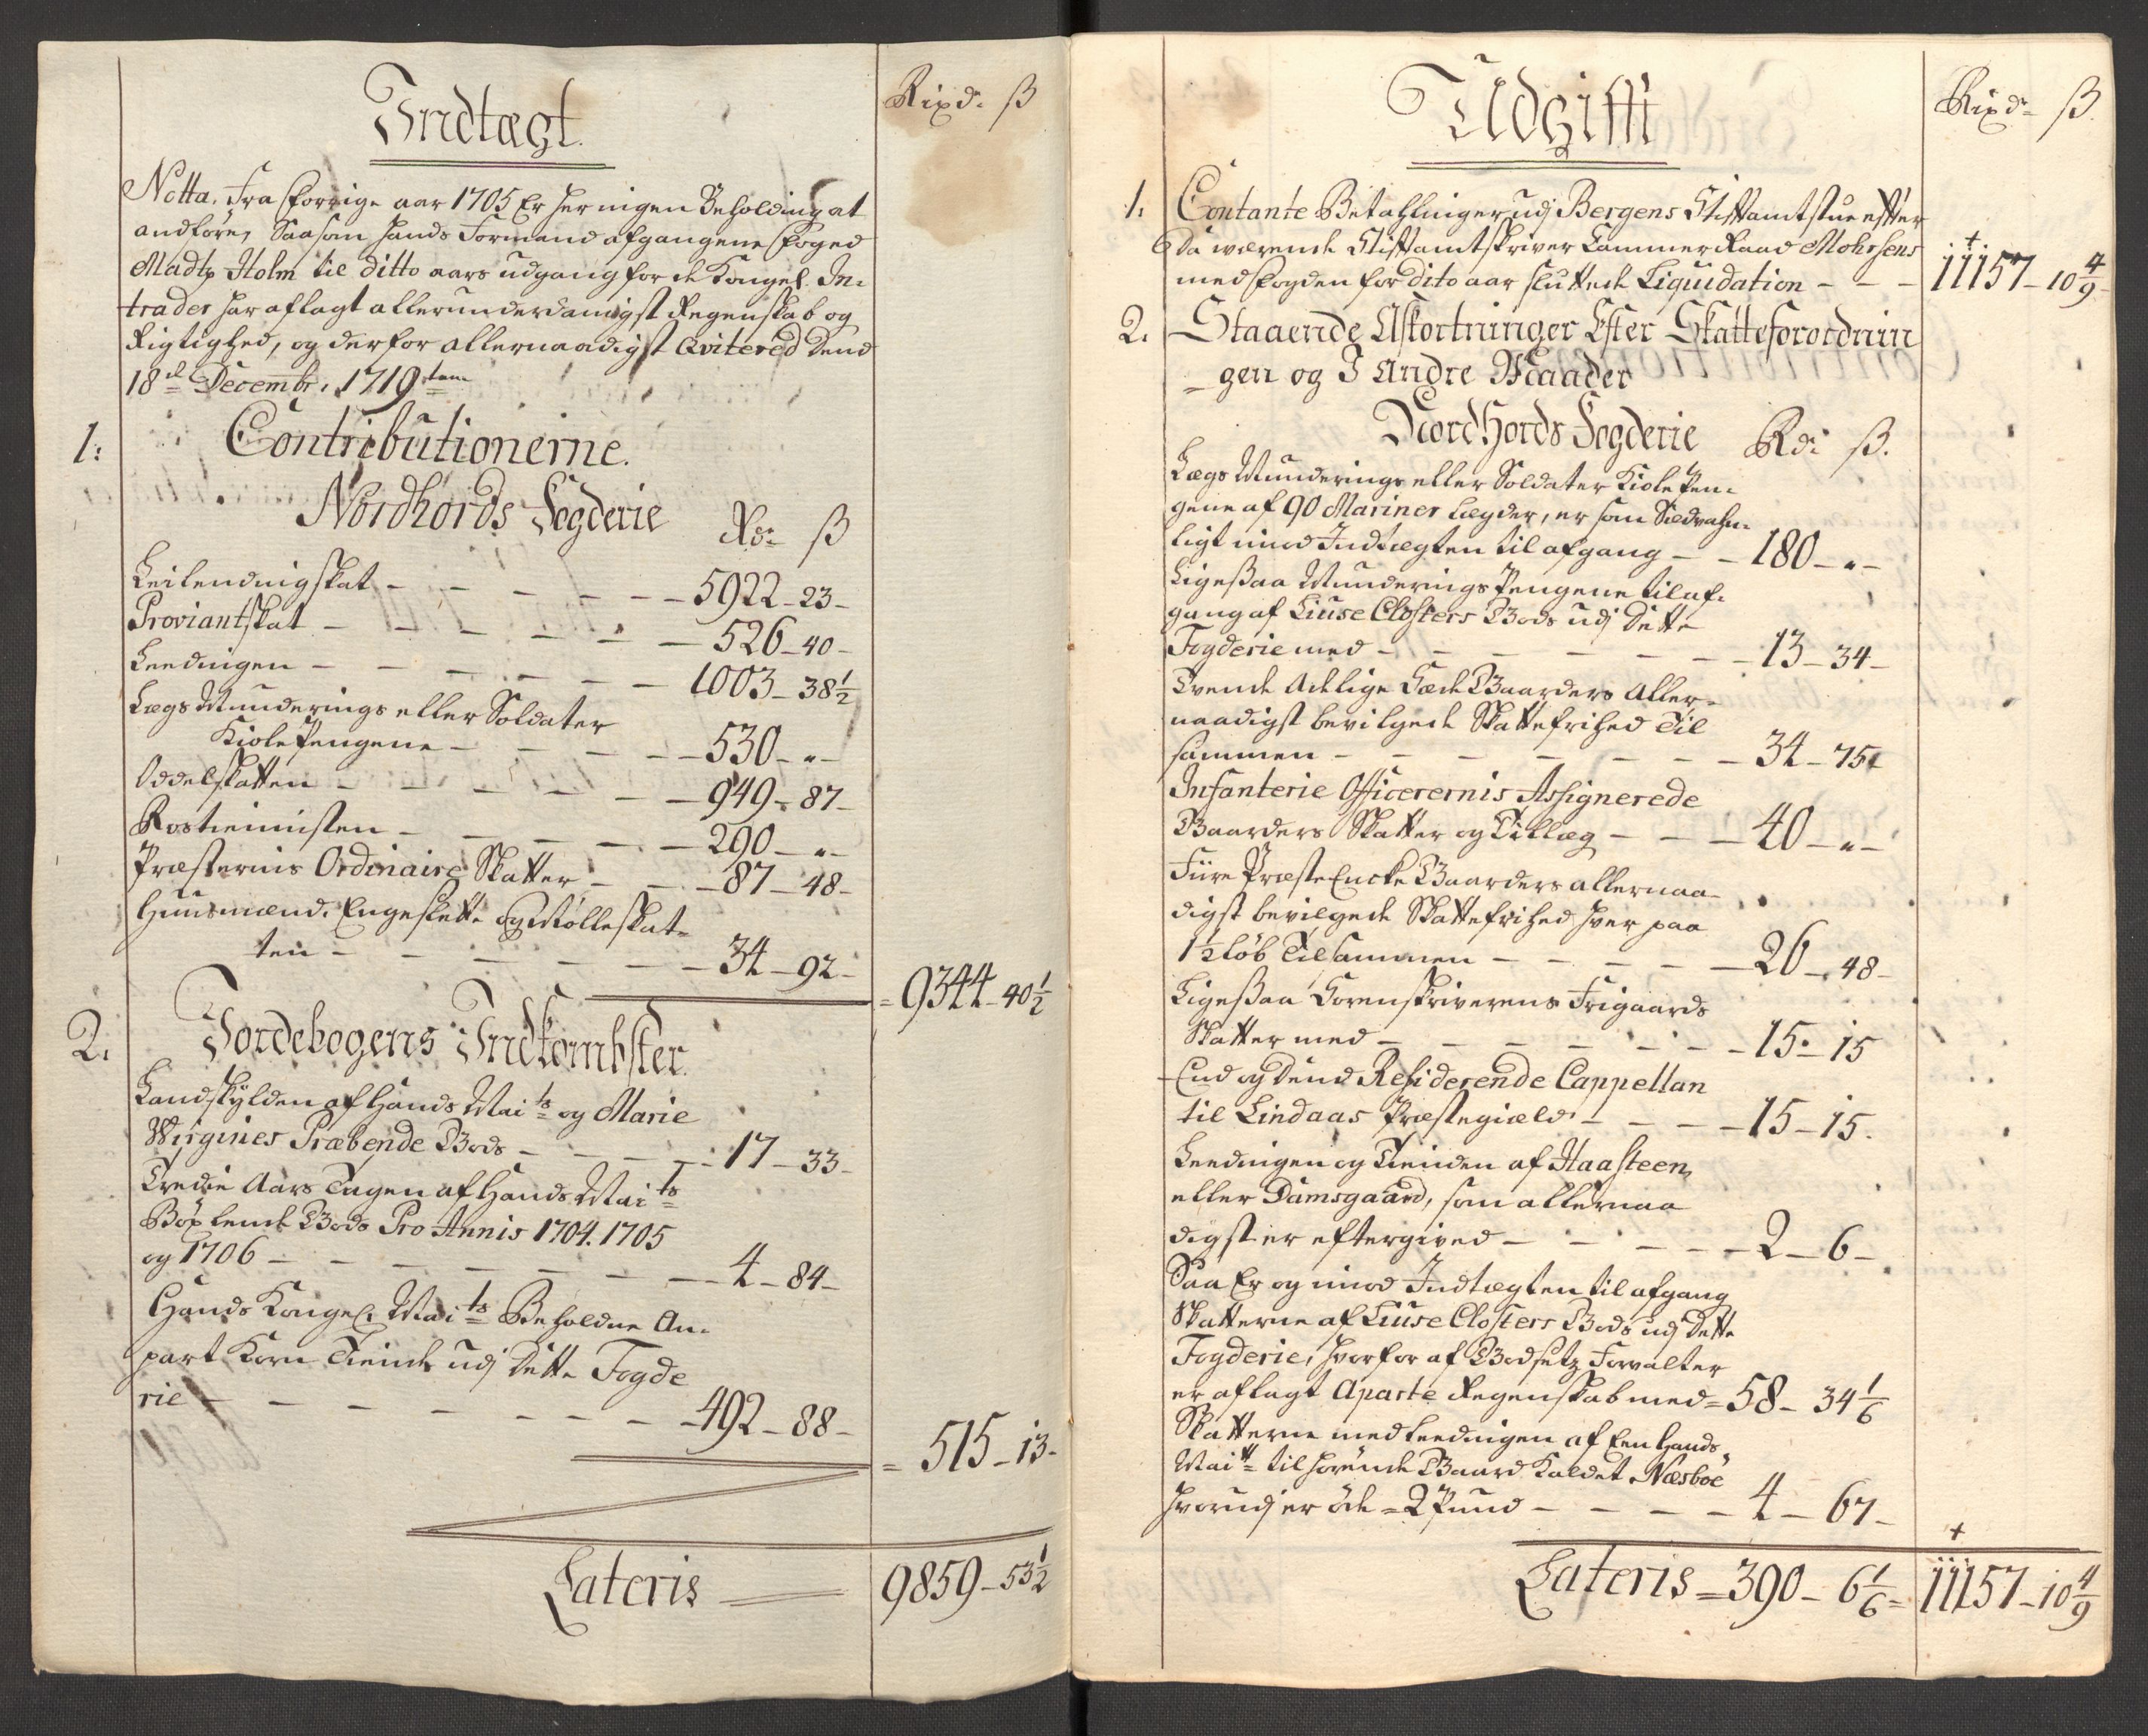 Indtægt.
Rixd. ß
Notta. Fra forrige aar 1705 Er her ingen Beholding at
andføre, Saasom hands Formand afgangene foged
Madtz Holm til ditto aars udgang for de Kongel. In-
trader har aflagt allerunderdanigst Regenskab og
Rigtighed, og derfor allernaadigst Qvitered Dend
18de Decembr. 1719ten
1: Contributionerne.
Nordhords Fogderie Rd: ß
Leilendingskat - - - - - 5922 - 23 -
Proviantskat - - - - - - 526 - 40 -
Leedingen - - - - - 1003 - 38½
Lægs Munderings eller Soldater
Kiole Pengene - - - - 530 - " -
Oddelskatten - - - - - 949 - 87 -
Rostienisten - - - - - 290 - " -
Præsternis Ordinaire Skatter - - 87 - 48 -
Huusmænd. Engeslette og Mølleskat-
ten - - - - - - 34 - 92 -
= 9344 - 40½
2. Jordebogens Indkombster.
Landskylden af Hands Maits og Marie
Wirgines Præbende Gods - - - - 17 - 33 -
Tredie Aars Tagen af Hands Maits
Böxlende Gods Pro Annis 1704. 1705
og 1706 - - - - - - - 4 - 84 -
Hands Kongel. Maits Beholdne An-
part Korn Tiende udj Dette Fogde
rie - - - - - - - 492 - 88 -
= 515 - 13 -
Lateris = 9859 - 53½
Udgifft
Rixd= ß.
1. Contante Betahlinger udj Bergens Stiftamtstue efter
Da værende Stiftamtskriver Cammer Raad Mohrsens
med fogden for dito aar sluttede Liquidation - - - 11157 - 10 4/9
2. Staaende Afkortninger Efter Skatteforordnin
gen og I Andre Maader
Nordhords Fogderie Rd: ß.
Lægs Munderings eller Soldater Kiole Pen-
gene af 90 Mariner Lægder, er som Sædvahn-
ligt imod Indtægten til afgang - - 180 - " -
Ligeßaa Munderings Pengene til af-
gang af Liuse Closters Gods udj Dette
Fogderie med - - - - - - 13 - 34 -
Tvende Adelige Sæde Gaarders Aller-
naadigst bevilgede Skattefrihed Til
sammen - - - - - - - 34 - 75
Infanterie Officerernis Assignerede
Gaarders Skatter og Tillæg - - - 40 - " -
Fiire Præste Encke Gaarders allernaa-
digst bevilgede Skattefrihed hver paa
1½ löb Tilsammen - - - - - 26 - 48 -
Ligeßaa Sorenskriverens Frigaards
Skatter med - - - - - - - 15 - 15
End og Dend Residerende Cappellan
til Lindaas Præstegield - - - - 15 - 15.
Leedingen og Tienden af Haasteen
eller Damsgaard, som allernaa
digst er eftergived - - - - - 2 - 6 -
Saa Er og imod Indtægten til afgang
Skatterne af Liuse Closters Gods udj Dette
Fogderie, hvorfor af Godsetz Forvalter
er aflagt Aparte Regenskab med = 58 - 34 1/6
Skatterne med Leedingen af Een Hands
Maits tilhørende Gaard Kaldet Næsböe
hvorudj er öde = 2 Pund - - - - 4 - 67 -
Lateris = 390 - 6 1/6 = 11157 - 10 4/9